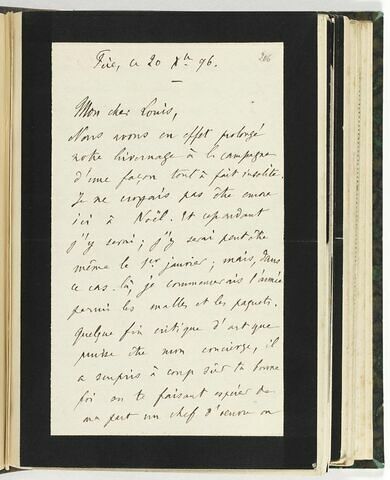 Fère, ce 20 Xbre 96.
206
Mon cher Louis,
Nous avons en effet prolongé
notre hivernage à la campagne
d'une façon tout à fait insolite.
Je ne croyais pas être encore
ici à Noël. Et cependant
j'y serai ; j'y serai peut-être
même le 1er janvier ; mais, dans
ce cas-là, je commencerais l'année
parmi les malles et les paquets.
Quelque fin critique d'art que
puisse être mon concierge, il
a surpris à coup sûr ta bonne
foi en te faisant espérer de
ma part un chef d'œuvre ou